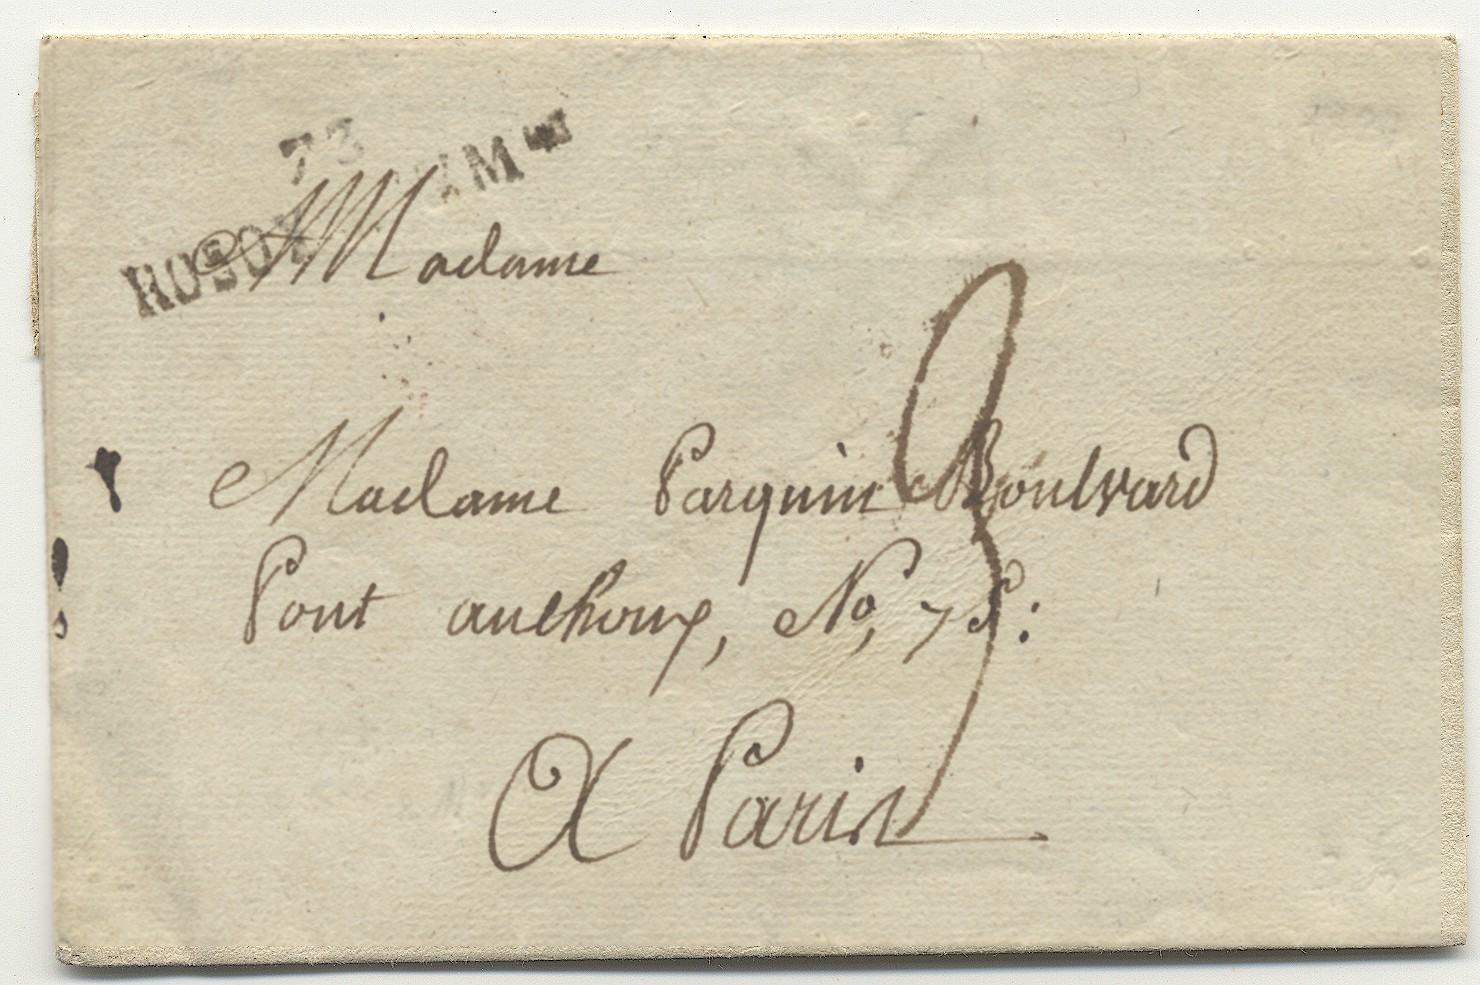 73
Madame
3
Madame Parquin Boulvard
Pont auchoux, No, 78:
A Paris